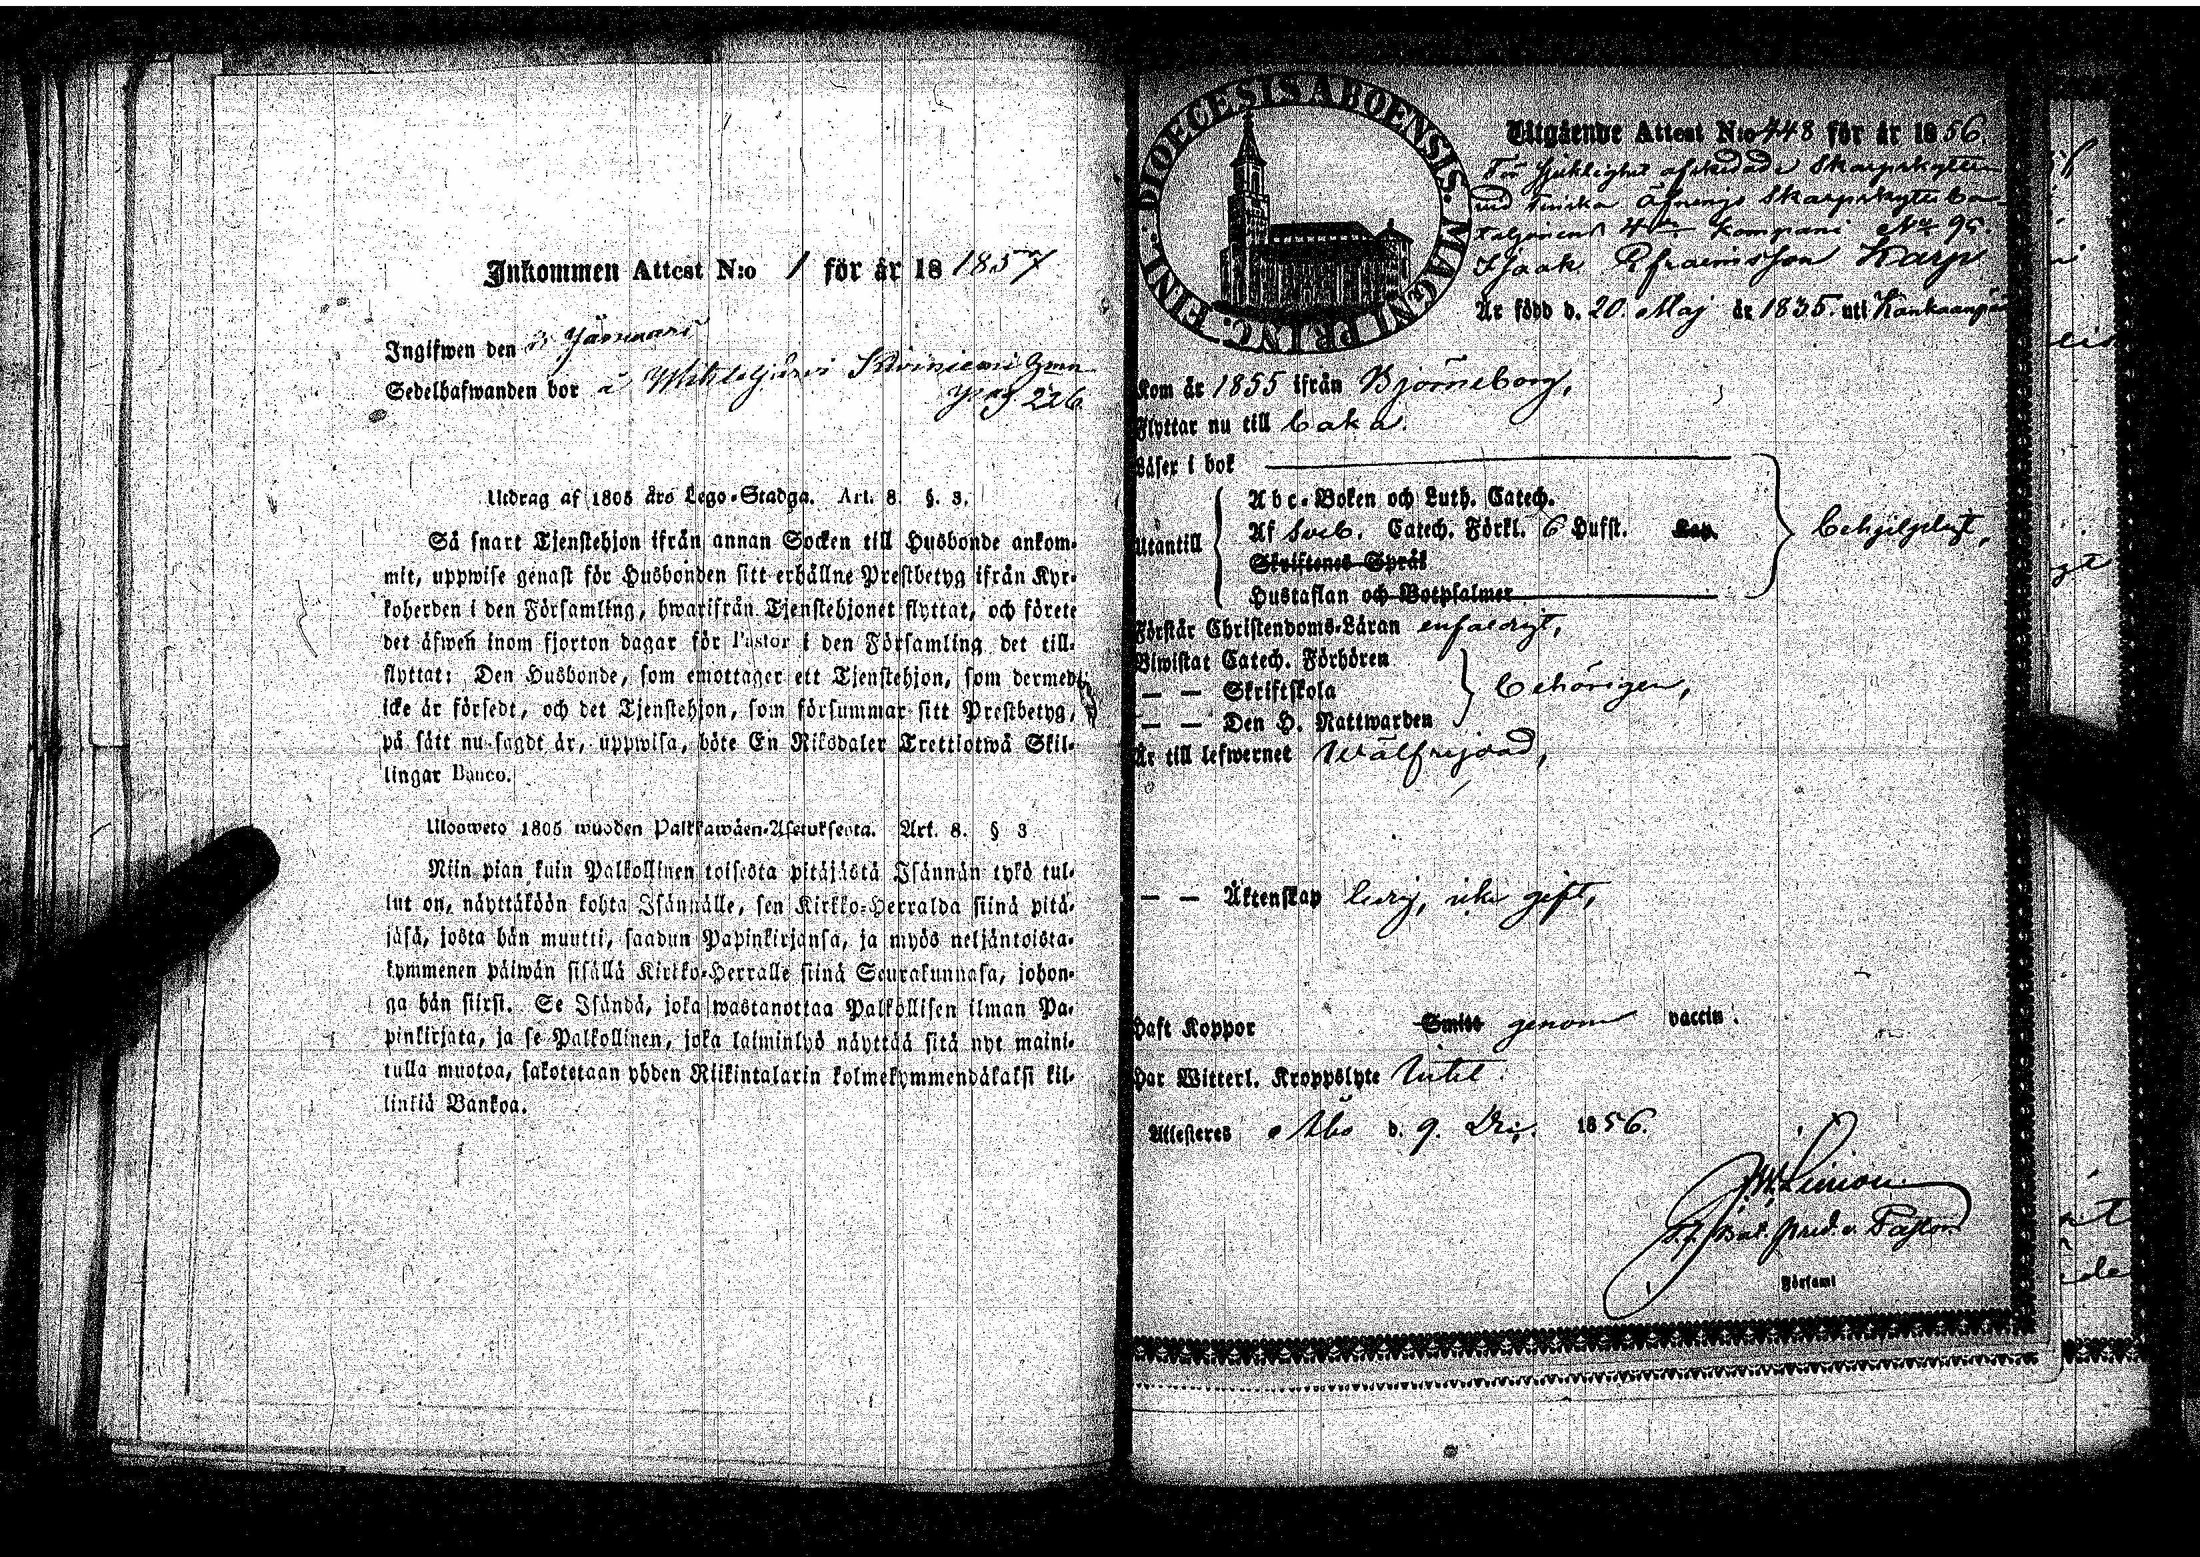 Inkommen Attest N:o 1 för år 18 1857
Ingifwen den Januari
Sedelhafwanden bor å
pag 226
Utdrag af 1805 års Lego-Stadga. Art. 8. §. 3.
Så snart Tjenstehjon ifrån annan Socken till Husbonde ankom-
mit, uppwise genast för Husbonden sitt erhållne Prestbetyg ifrån Kyr-
koherden i den Församling, hwarifrån Tjenstehjonet flyttat, och förete
det äfwen inom fjorton dagar för Pastor i den Församling det till-
flyttat: Den Husbonde, som emottager ett Tjenstehjon, som dermed
icke är försedt, och det Tjenstehjon, som försummar sitt Prestbetyg,
på sätt nu sagdt är, uppwisa, böte En Riksdaler Trettiotwå Skil-
lingar Banco.
Ulosweto 1805 wuoden Palkkawäen-Asetuksesta. Art. 8. § 3
Niin pian kuin Palkollinen toisesta pitäjästä Isännän tykö tul-
lut on, näyttäköön kohta Isännälle, sen Kirkko-Herralda siinä pitä-
jäsä, josta hän muutti, saadun Papinkirjansa, ja myös neljäntoista-
kymmenen päiwän sisällä Kirkko-Herralle siinä Seurakunnasa, johon-
ga hän siirsi. Se Isändä, joka wastanottaa Palkollisen ilman Pa-
pinkirjata, ja se Palkollinen, joka laiminlyö näyttää sitä nyt maini-
tulla muotoa, sakotetaan yhden Riikintalarin kolmekymmendäkaksi kil-
linkiä Bankoa.
DIOECESIS ABOENSIS. MAGNI PRINC. FINL.
Utgående Attest N:o 448 för år 1856.
För sjuklighet afskedade Skarpskytten
vid Finska Skarpskytte ba-
taljonens 4de Kompani No 95.
Isaak Efraimsson Karp
Är född d. 20. Maj år 1835. uti
Kom år 1855 ifrån Björneborg,
Flyttar nu till baka.
Läser i bok
Utantill
Abc-Boken och Luth. Catech.
Af Sveb. Catech. Förkl. 6 Hufst. Cap.
Skriftenes Språk
Hustaflan och Botpsalmer
behjelpligt,
Förstår Christendoms-Läran enfaldigt,
Biwistat Catech. Förhören
— — Skriftskola
— — Den H. Nattwarden
behörigen,
Är till lefwernet wälfrejdad,
— — Äktenskap ledig, icke gift,
Haft Koppor Smitt genom vaccin.
Har Witterl. Kroppslyte Intet.
Attesteras Åbo d. 9. Dec. 1856.
Bat. pred. o. Pastor
Församl